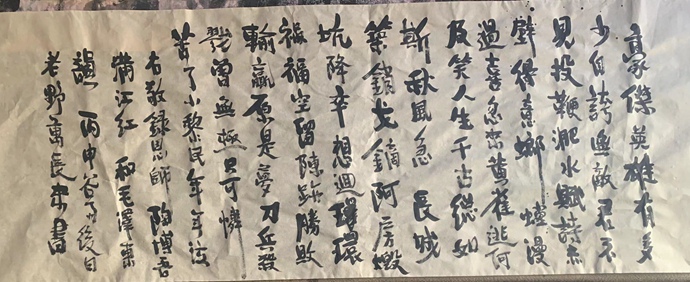 豪傑英雄有多
少自誇無敵君不
見投鞭淝水賦詩赤
壁得意螂螗漫
過喜忽驚黃雀逃何
及笑人生千古總如
斯秋風急 長城
築銷戈鏑阿房燬
坑降卒想迴環
禍福空留陳跡勝敗
輸贏原是夢刀兵殺
戮曾無極只可憐
苦了小黎民年年泣
右敬錄恩師 陶博吾
滿江紅 和毛澤東
韻 丙申谷雨後日
老野萬長書